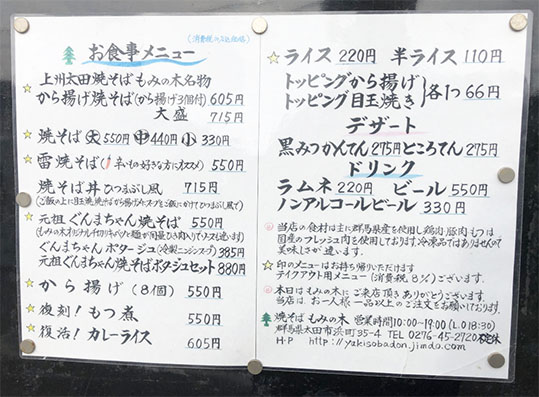 (消費税10%込価格)
お食事メニュー
上州太田焼そばもみの木名物
から揚げ焼そば(から揚げ3個付) 605円
大盛 715円
☆焼そば 大 550円 中 440円 小 330円
☆雷焼そば(辛いもの好きな方にオススメ) 550円
焼そば丼ひつまぶし風 715円
(ご飯の上に目玉焼焼そばから揚げ付スープをご飯にかけてひつまぶし風で)
☆元祖ぐんまちゃん焼そば 550円
(もみの木オリジナル仕切りキャベツと麺が同量ひき肉入りでソースも違います)
ぐんまちゃんポタージュ(冷製ニンジンスープ) 385円
元祖ぐんまちゃん焼そばポタジュセット 880円
☆から揚げ(8個) 550円
☆復刻!もつ煮 550円
☆復活!カレーライス 605円
☆ライス 220円 半ライス 110円
☆トッピングから揚げ
トッピング目玉焼き 各1つ 66円
デザート
黒みつかんてん 275円 ところてん 275円
ドリンク
ラムネ 220円 ビール 550円
ノンアルコールビール 330円
当店の食材は主に群馬県産を使用し鶏肉・豚肉・もつは
国産のフレッシュ肉を使用しております。冷凍品ではありませんので
美味しさが違います。
☆印のメニューはお持ち帰りいただけます
テイクアウト用メニュー(消費税8%)ございます。
本日はもみの木にご来店頂きありがとうございます。
当店は、お一人様一品以上のご注文をお願いしております。
焼そばもみの木 営業時間10:00~19:00(L.O18:30)
群馬県太田市浜町35-4 TEL 0276-45-2720 不定休
H・P http://yakisobadon.jimdo.com